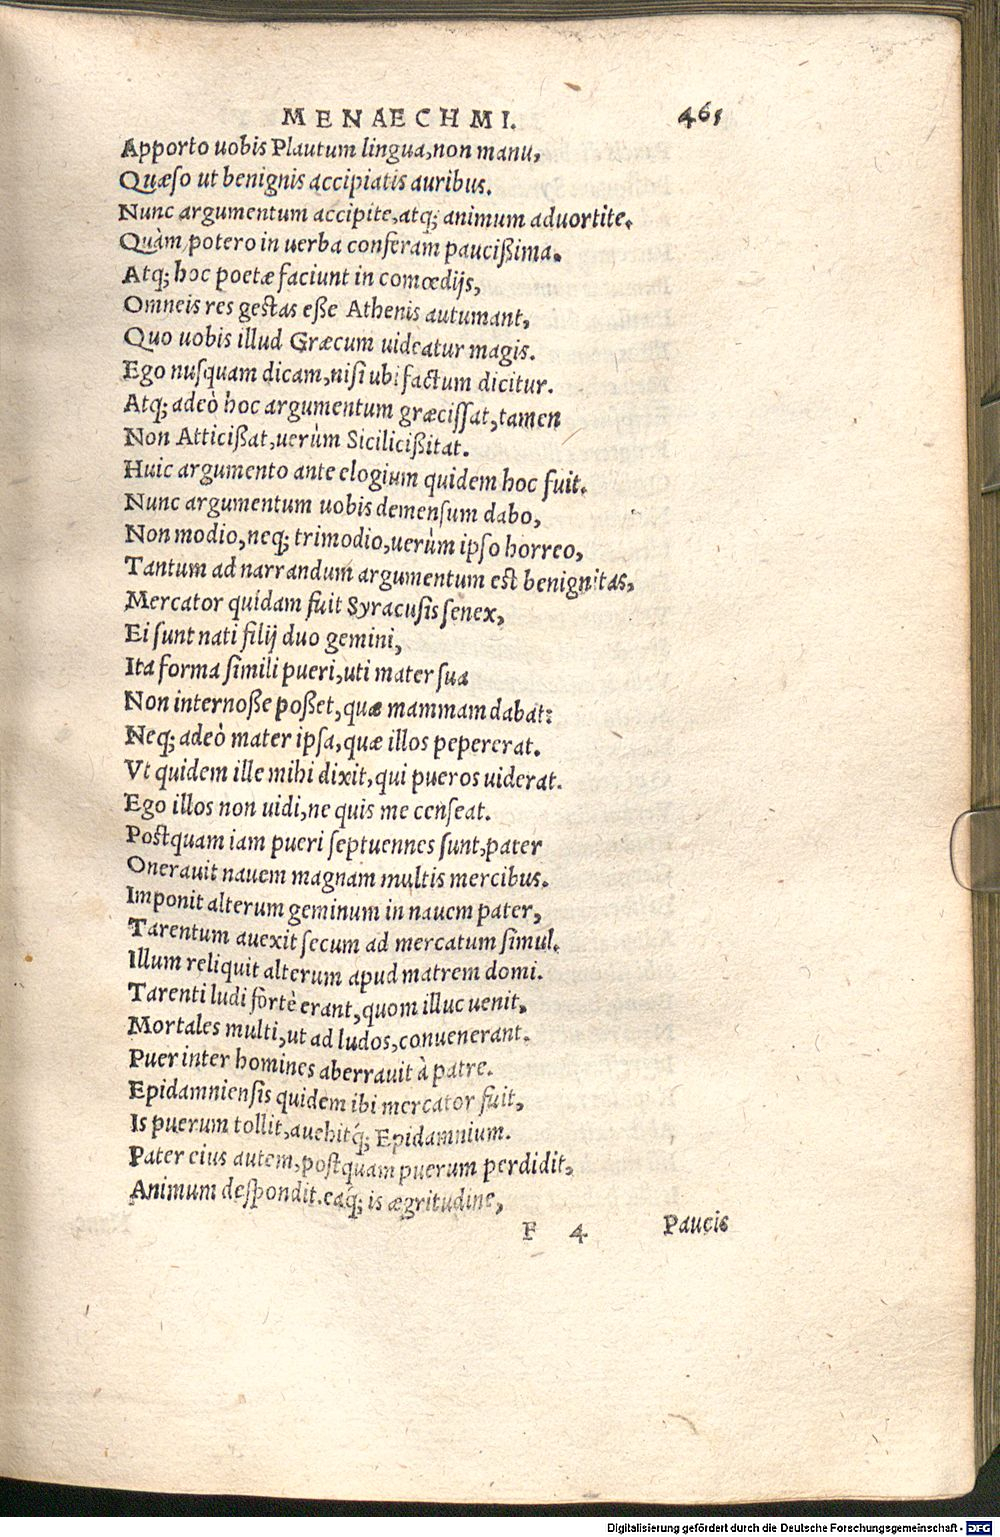 MENAECHMI. 461
Apporto uobis Plautum lingua, non manu,
Quæso ut benignis accipiatis auribus.
Nunc argumentum accipite, atq; animum aduortite.
Quàm potero in uerba conferam paucißima.
Atq; hoc poetæ faciunt in comœdijs,
Omneis res gestas eße Athenis autumant,
Quo uobis illud Græcum uideatur magis.
Ego nusquam dicam, nisi ubi factum dicitur.
Atq; adeò hoc argumentum græcissat, tamen
Non Atticißat, uerùm Sicilicißitat.
Huic argumento ante elogium quidem hoc fuit.
Nunc argumentum uobis demensum dabo,
Non modio, neq; trimodio, uerùm ipso horreo,
Tantum ad narrandum argumentum est benignitas,
Mercator quidam fuit Syracusis senex,
Ei sunt nati filij duo gemini,
Ita forma simili pueri, uti mater sua
Non internoße poßet, quæ mammam dabat:
Neq; adeò mater ipsa, quæ illos pepererat.
Vt quidem ille mihi dixit, qui pueros uiderat.
Ego illos non uidi, ne quis me censeat.
Postquam iam pueri septuennes sunt, pater
Onerauit nauem magnam multis mercibus.
Imponit alterum geminum in nauem pater,
Tarentum auexit secum ad mercatum simul.
Illum reliquit alterum apud matrem domi.
Tarenti ludi fortè erant, quom illuc uenit,
Mortales multi, ut ad ludos, conuenerant.
Puer inter homines aberrauit à patre.
Epidamniensis quidem ibi mercator fuit,
Is puerum tollit, auehitq́; Epidamnium.
Pater eius autem, postquam puerum perdidit,
Animum despondit. eaq́; is ægritudine,
F 4 Paucis
Digitalisierung gefördert durch die Deutsche Forschungsgemeinschaft - DFG